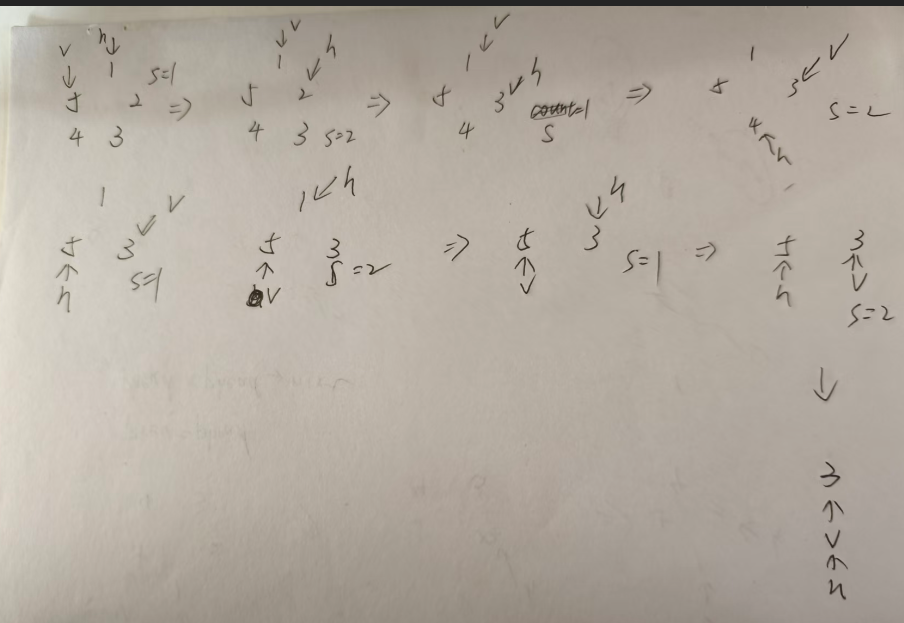 v h v h v
1 s=1 1 h 1 h 1 v
5 2 => 5 2 => 5 3 => 5 3
4 3 4 3 s=2 4 count=1 4 s=2
s h
1 v 1 h h
5 3 5 3 => 5 3 => 5 3
h s=1 v s=2 v s=1 h v
s=2
3
v
h